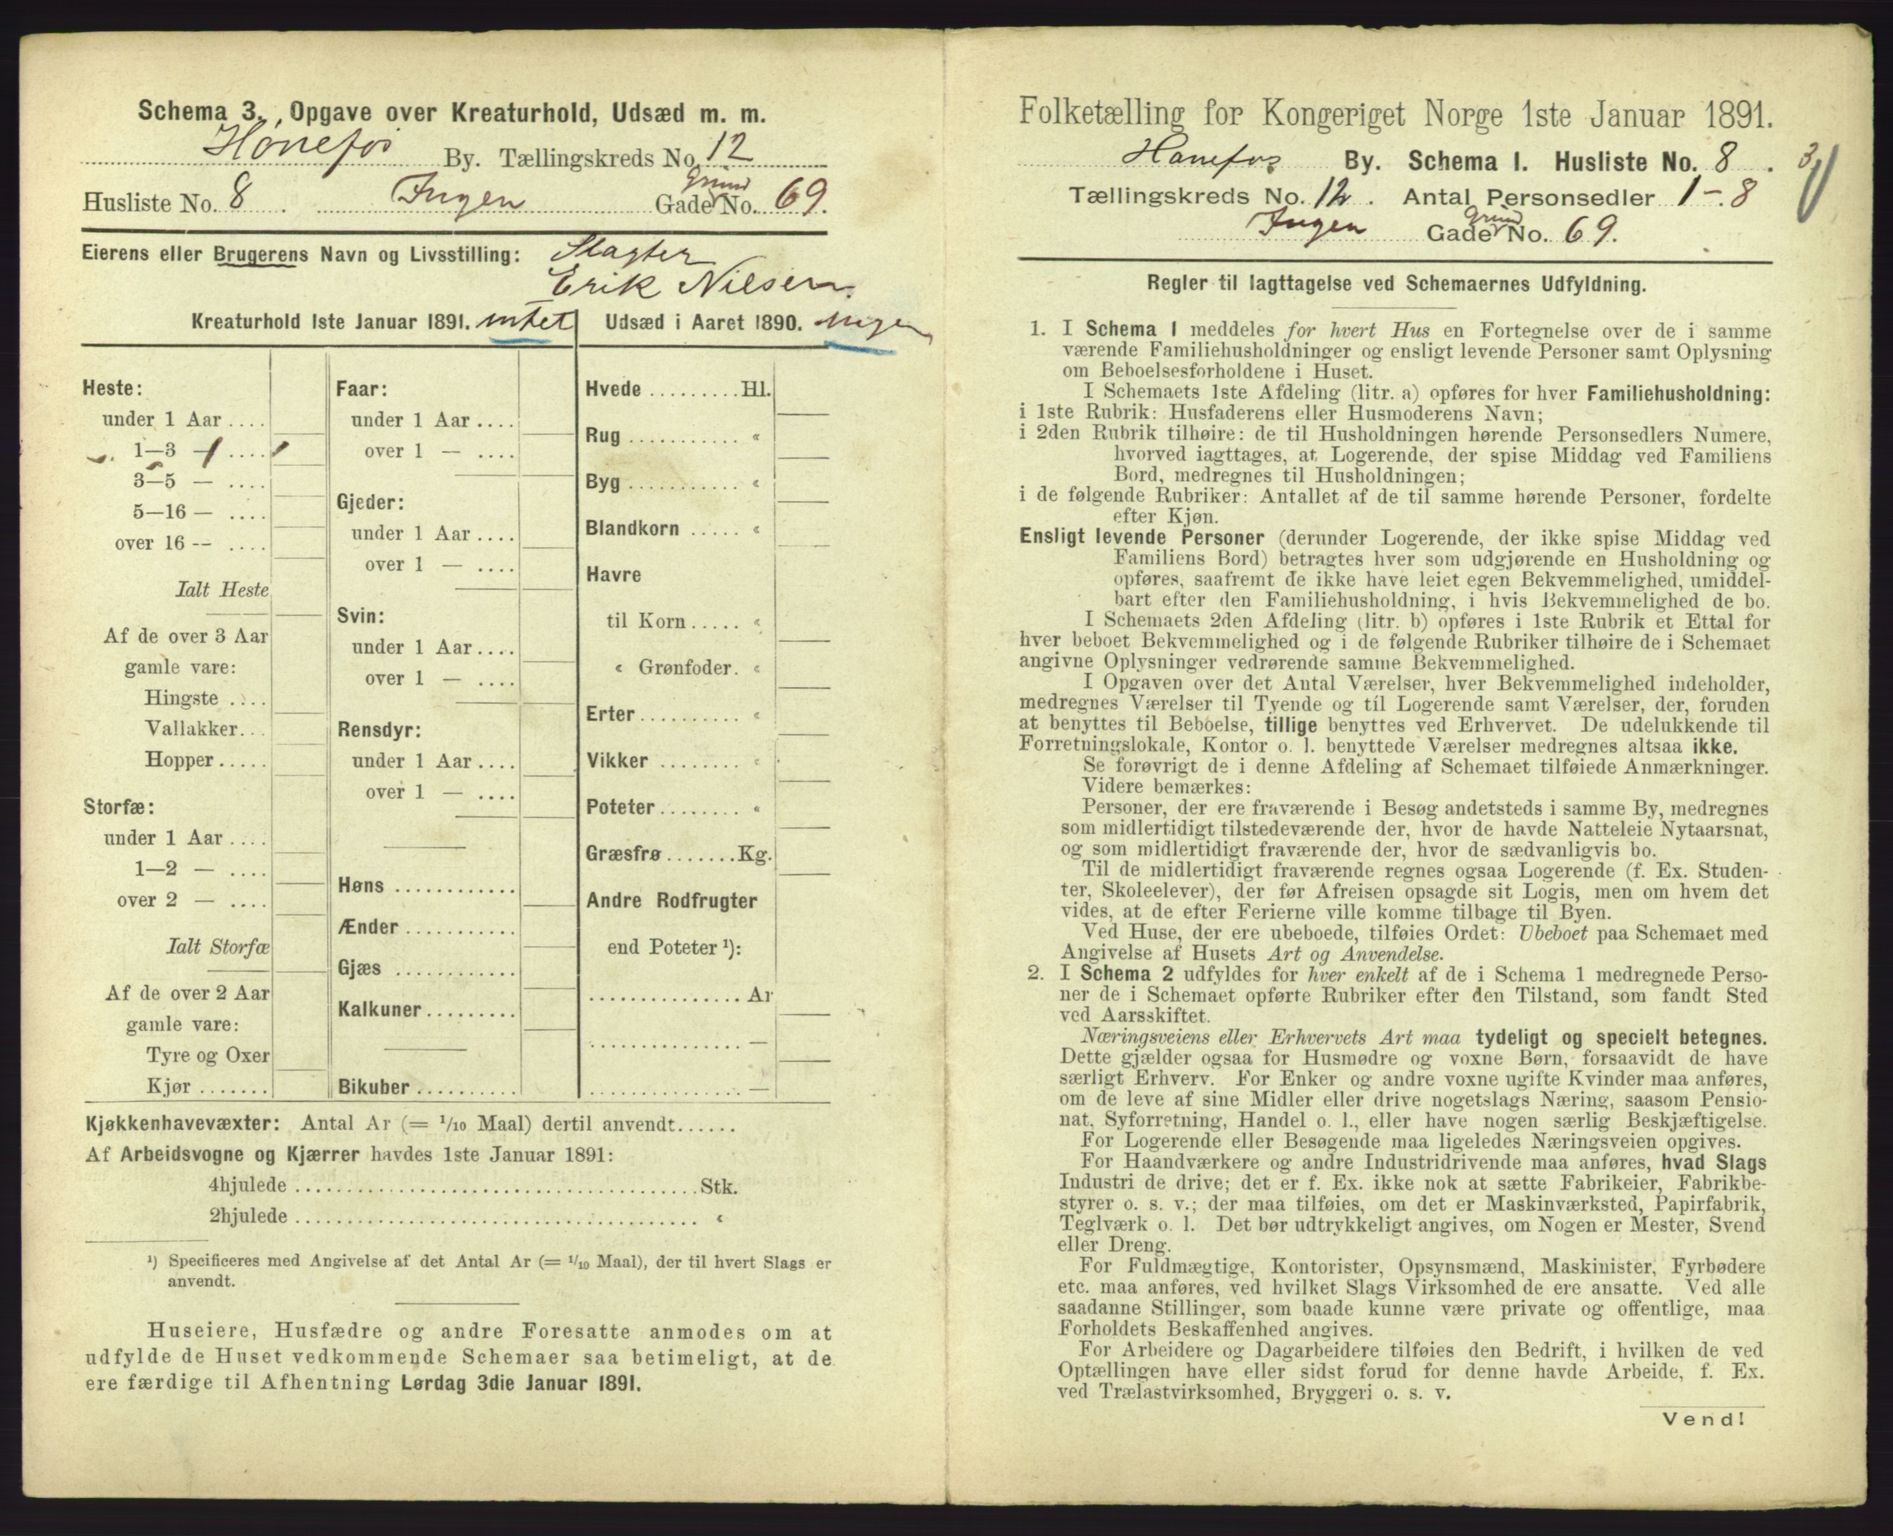 Schema 3. Opgave over Kreaturhold, Udsæd m. m.
Hønefos By. Tællingskreds No. 12
Husliste No. 8. Ingen Gade Grund No. 69.
Eierens eller Brugerens Navn og Livsstilling: Slagter
Erik Nilsen.
Kreaturhold 1ste Januar 1891. intet
Heste:
under 1 Aar ....
1—3 — ....
3—5 — ....
5—16 — ....
over 16 -- ....
Ialt Heste
Af de over 3 Aar
gamle vare:
Hingste ....
Vallakker...
Hopper.....
Storfæ:
under 1 Aar ....
1—2 — ....
over 2 — ....
Ialt Storfæ
Af de over 2 Aar
gamle vare:
Tyre og Oxer
Kjør .......
Faar:
under 1 Aar ....
over 1 — ....
Gjeder:
under 1 Aar ....
over 1 — ....
Svin:
under 1 Aar ....
over 1 — ....
Rensdyr:
under 1 Aar ....
over 1 — ....
Høns ............
Ænder ...........
Gjæs ............
Kalkuner.........
Bikuber ..........
Udsæd i Aaret 1890. ingen
Hvede .........Hl.
Rug ........... "
Byg ........... "
Blandkorn ..... "
Havre
til Korn..... "
" Grønfoder. "
Erter.......... "
Vikker ........ "
Poteter........ "
Græsfrø.......Kg.
Andre Rodfrugter
end Poteter ¹):
...............Ar
............... —
............... —
Kjøkkenhavevæxter: Antal Ar (= 1/10 Maal) dertil anvendt......
Af Arbeidsvogne og Kjærrer havdes 1ste Januar 1891:
4hjulede ........................................Stk.
2hjulede ........................................ "
¹) Specificeres med Angivelse af det Antal Ar (= 1/10 Maal), der til hvert Slags er
anvendt.
Huseiere, Husfædre og andre Foresatte anmodes om at
udfylde de Huset vedkommende Schemaer saa betimeligt, at de
ere færdige til Afhentning Lørdag 3die Januar 1891.
Folketælling for Kongeriget Norge 1ste Januar 1891.
Hønefos By. Schema I. Husliste No. 8.
Tællingskreds No. 12. Antal Personsedler 1-8
Ingen Gade Grund No. 69.
Regler til Iagttagelse ved Schemaernes Udfyldning.
1. I Schema 1 meddeles for hvert Hus en Fortegnelse over de i samme
værende Familiehusholdninger og ensligt levende Personer samt Oplysning
om Beboelsesforholdene i Huset.
I Schemaets 1ste Afdeling (litr. a) opføres for hver Familiehusholdning:
i 1ste Rubrik: Husfaderens eller Husmoderens Navn;
i 2den Rubrik tilhøire: de til Husholdningen hørende Personsedlers Numere,
hvorved iagttages, at Logerende, der spise Middag ved Familiens
Bord, medregnes til Husholdningen;
i de følgende Rubriker: Antallet af de til samme hørende Personer, fordelte
efter Kjøn.
Ensligt levende Personer (derunder Logerende, der ikke spise Middag ved
Familiens Bord) betragtes hver som udgjørende en Husholdning og
opføres, saafremt de ikke have leiet egen Bekvemmelighed, umiddel-
bart efter den Familiehusholdning, i hvis Bekvemmelighed de bo.
I Schemaets 2den Afdeling (litr. b) opføres i 1ste Rubrik et Ettal for
hver beboet Bekvemmelighed og i de følgende Rubriker tilhøire de i Schemaet
angivne Oplysninger vedrørende samme Bekvemmelighed.
I Opgaven over det Antal Værelser, hver Bekvemmelighed indeholder,
medregnes Værelser til Tyende og til Logerende samt Værelser, der, foruden
at benyttes til Beboelse, tillige benyttes ved Erhvervet. De udelukkende til
Forretningslokale, Kontor o. l. benyttede Værelser medregnes altsaa ikke.
Se forøvrigt de i denne Afdeling af Schemaet tilføiede Anmærkninger.
Videre bemærkes:
Personer, der ere fraværende i Besøg andetsteds i samme By, medregnes
som midlertidigt tilstedeværende der, hvor de havde Natteleie Nytaarsnat,
og som midlertidigt fraværende der, hvor de sædvanligvis bo.
Til de midlertidigt fraværende regnes ogsaa Logerende (f. Ex. Studen-
ter, Skoleelever), der før Afreisen opsagde sit Logis, men om hvem det
vides, at de efter Ferierne ville komme tilbage til Byen.
Ved Huse, der ere ubeboede, tilføies Ordet: Ubeboet paa Schemaet med
Angivelse af Husets Art og Anvendelse.
2. I Schema 2 udfyldes for hver enkelt af de i Schema 1 medregnede Perso-
ner de i Schemaet opførte Rubriker efter den Tilstand, som fandt Sted
ved Aarsskiftet.
Næringsveiens eller Erhvervets Art maa tydeligt og specielt betegnes.
Dette gjælder ogsaa for Husmødre og voxne Børn, forsaavidt de have
særligt Erhverv. For Enker og andre voxne ugifte Kvinder maa anføres,
om de leve af sine Midler eller drive nogetslags Næring, saasom Pensio-
nat, Syforretning, Handel o. l., eller have nogen særlig Beskjæftigelse.
For Logerende eller Besøgende maa ligeledes Næringsveien opgives.
For Haandværkere og andre Industridrivende maa anføres, hvad Slags
Industri de drive; det er f. Ex. ikke nok at sætte Fabrikeier, Fabrikbe-
styrer o. s. v.; der maa tilføies, om det er Maskinværksted, Papirfabrik,
Teglværk o. l. Det bør udtrykkeligt angives, om Nogen er Mester, Svend
eller Dreng.
For Fuldmægtige, Kontorister, Opsynsmænd, Maskinister, Fyrbødere
etc. maa anføres, ved hvilket Slags Virksomhed de ere ansatte. Ved alle
saadanne Stillinger, som baade kunne være private og offentlige, maa
Forholdets Beskaffenhed angives.
For Arbeidere og Dagarbeidere tilføies den Bedrift, i hvilken de ved
Optællingen have eller sidst forud for denne havde Arbeide, f. Ex.
ved Trælastvirksomhed, Bryggeri o. s. v.
Vend!